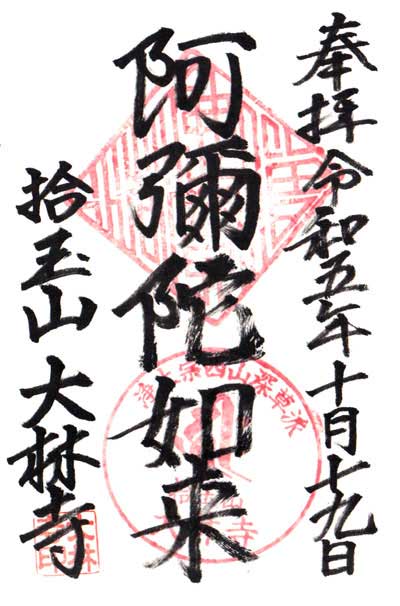 奉拝 令和五年 十月十九日
阿彌陀如来
拾玉山 大林寺
浄土宗西山深草派